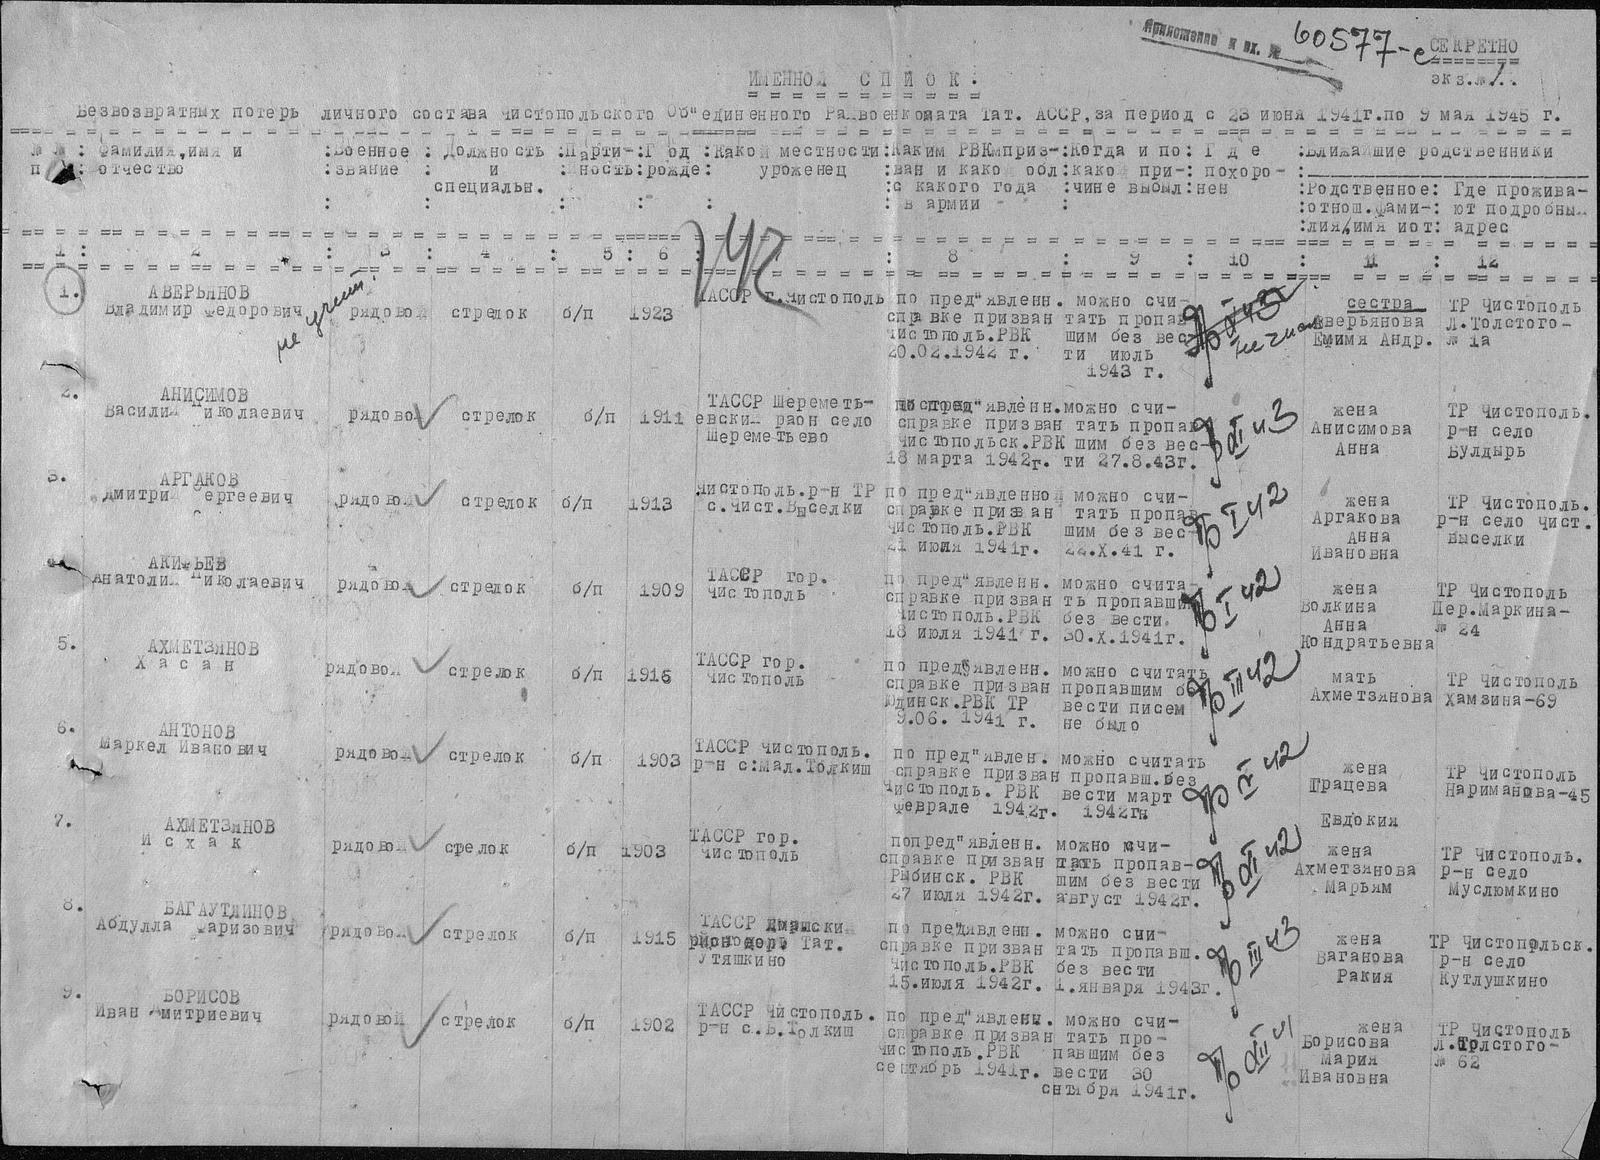 Приложение к вх. № 60577-с
СЕКРЕТНО
экз.№ 1.
ИМЕННОЙ СПИСОК.
Безвозвратных потерь личного состава Чистопольского Об"единенного Райвоенкомата Тат. АССР, за период с 23 июня 1941г.по 9 мая 1945 г.
№ №: Фамилия,имя и :Военное : Должность :Парти-:Год :Какой местности:Каким РВКмприз-:Когда и по: Г д е :Ближайшие родственники
п : отчество :звание : и :йность:рожде: уроженец :ван и какой обл:какой при-: похоро-:
специальн. :с какого года :чине выбыл:нен :Родственное: Где прожива-
: : : : : в армии : :отнош.фами-: ют подробный
:лия,имя и от: адрес
1 : 2 : 3 : 4 : 5 : 6 : : 8 : 9 : 10 : 11 : 12
142
1. АВЕРЬЯНОВ
Владимир Федорович рядовой стрелок б/п 1923 ТАССР г.Чистополь по пред"явленн. можно счи- сестра ТР Чистополь
не учит.
справке призван тать пропав- Аверьянова Л.Толстого-
Чистополь.РВК шим без вес- Емимя Андр. № 1а
20.02.1942 г. ти июль
1943 г.
2. АНИСИМОВ
Василий Николаевич рядовой стрелок б/п 1911 ТАССР Шереметь- по пред"явленн.можно счи- жена ТР Чистополь.
евский раон село справке призван тать пропав Анисимова р-н село
Шереметьево Чистопольск.РВК шим без вес- Анна Булдырь
18 марта 1942г. ти 27.8.43г.
XI 43
3. АРГАКОВ
Дмитрий Сергеевич рядовой стрелок б/п 1913 Чистополь.р-н ТР по пред"явленной можно счи- жена ТР Чистополь.
с.Чист.Выселки справке призван тать пропав Аргакова р-н село Чист.
Чистополь.РВК шим без вес- Анна Выселки
21 июля 1941г. 22.X.41 г. Ивановна
I 42
АКИТЬЕВ
Анатолий Николаевич рядовой стрелок б/п 1909 ТАССР гор. по пред"явленн. можно счита- жена ТР Чистополь
Чистополь справке призван ть пропавшим Волкина Пер.Маркина-
Чистополь.РВК без вести Анна № 24
18 июля 1941 г. 30.X.1941г. Кондратьевна
I 42
5. АХМЕТЗЯНОВ
Х а с а н рядовой стрелок б/п 1916 ТАССР гор. по пред"явленн. можно считать мать ТР Чистополь
Чистополь справке призван пропавшим б Ахметзянова Хамзина-69
Юдинск.РВК ТР вести писем
9.06. 1941 г. не было
III 42
6. АНТОНОВ
Маркел Иванович рядовой стрелок б/п 1903 ТАССР Чистополь. по пред"явлен. можно считать жена ТР Чистополь
р-н с:Мал.Толкиш справке призван пропавш.без Працева Нариманова-45
Чистополь. РВК вести март
феврале 1942г. 1942гн Евдокия
42
7. АХМЕТЗЯНОВ
И с х а к рядовой стрелок б/п 1903 ТАССР гор. попред"явленн. можно счи- жена ТР Чистополь.
Чистополь справке призван тать пропав- Ахметзянова р-н село
Рыбинск. РВК шим без вести Марьям Муслюмкино
27 июля 1942г. август 1942г.
XI 42
8. БАГАУТДИНОВ
Абдулла Фаризович рядовой стрелок б/п 1915 ТАССР по пред"явленн. можно счи- жена ТР Чистопольск.
Тат. справке призван тать пропавш. Ваганова р-н село
Утяшкино Чистополь.РВК без вести Ракия Кутлушкино
15.июля 1942г. 1.января 1943г.
III 43
9. БОРИСОВ
Иван Дмитриевич рядовой стрелок б/п 1902 ТАССР Чистополь. по пред"явлены. можно счи- жена ТР Чистополь
р-н с.Б.Толкиш справке призван тать про- Борисова Л.Толстого-
Чистополь.РВК павшим без Мария № 62
сентябрь 1941г. вести 30 Ивановна
снтября 1941г.
XII 41